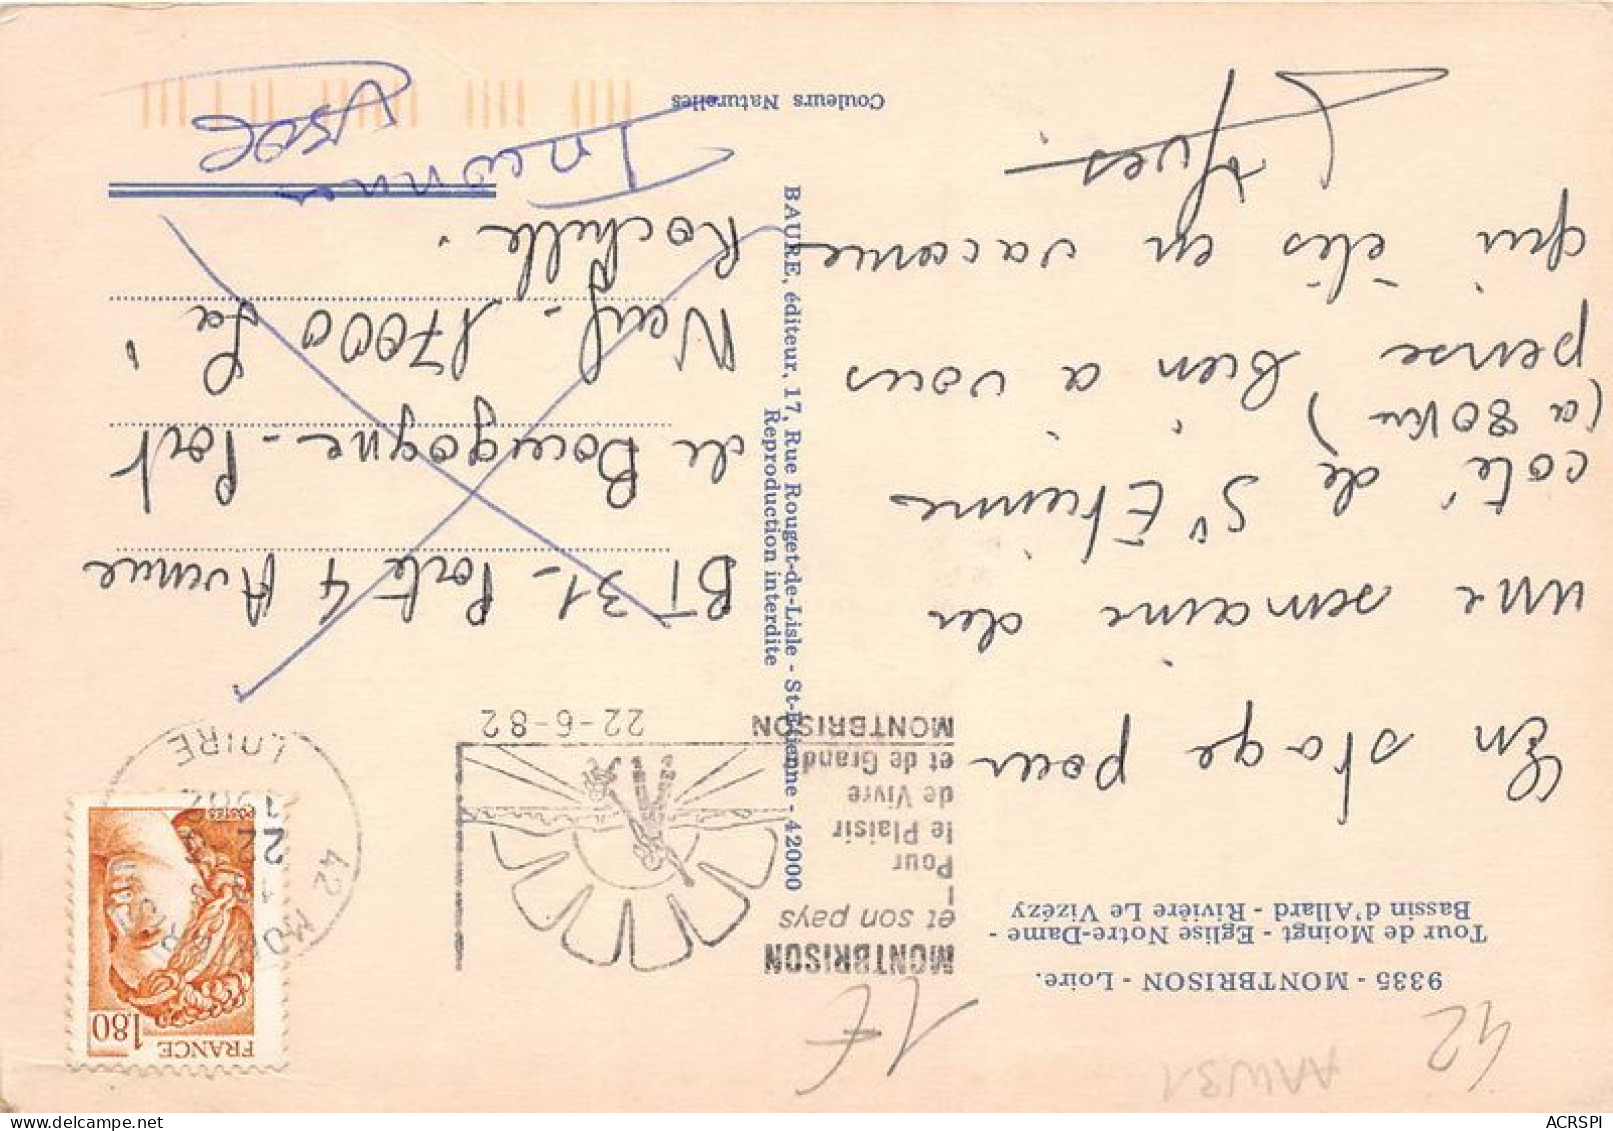 9335 - MONTBRISON - Loire.
Tour de Moingt - Eglise Notre-Dame -
Bassin d'Allard - Rivière Le Vizézy
En stage pour
une semaine du
coté de St Etienne
(a 80km)
pense bien a vous
qui êtes en vacance
Yves
MONTBRISON
et son pays
Pour
le Plaisir
de Vivre
et de Grand
MONTBRISON 22-6-82
FRANCE
1,80
POSTES
42 MONTBRISON
22
1982
LOIRE
BAURE, éditeur, 17, Rue Rouget-de-Lisle - St-Etienne - 42000
Reproduction interdite
Couleurs Naturelles
BT 31 - Porte 4 Avenue
de Bourgogne - Port
Neuf - 17000 La
Rochelle.
Inconnu
42
AAW31
1€
ACRSPI